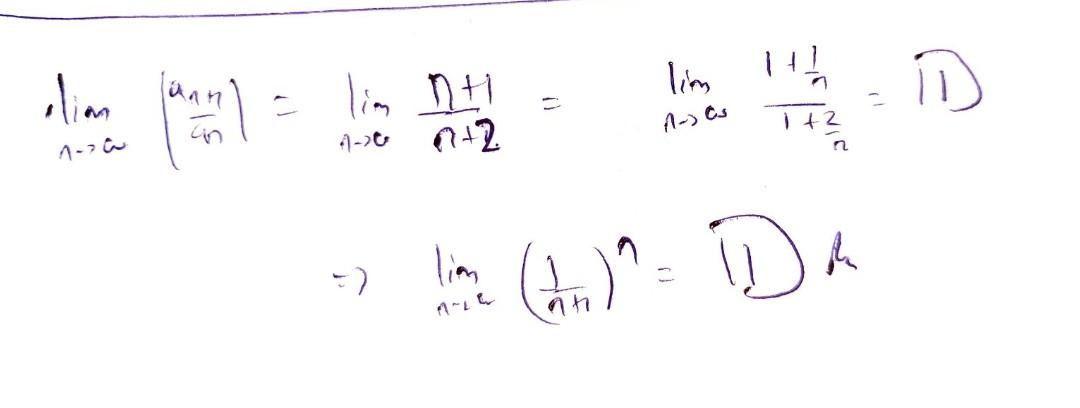 lim n→∞ |a_{n+1}/a_n| = lim n→∞ (n+1)/(n+2) = lim n→∞ (1+1/n)/(1+2/n) = 1
=> lim n→∞ (1/(n+1))^n = 1